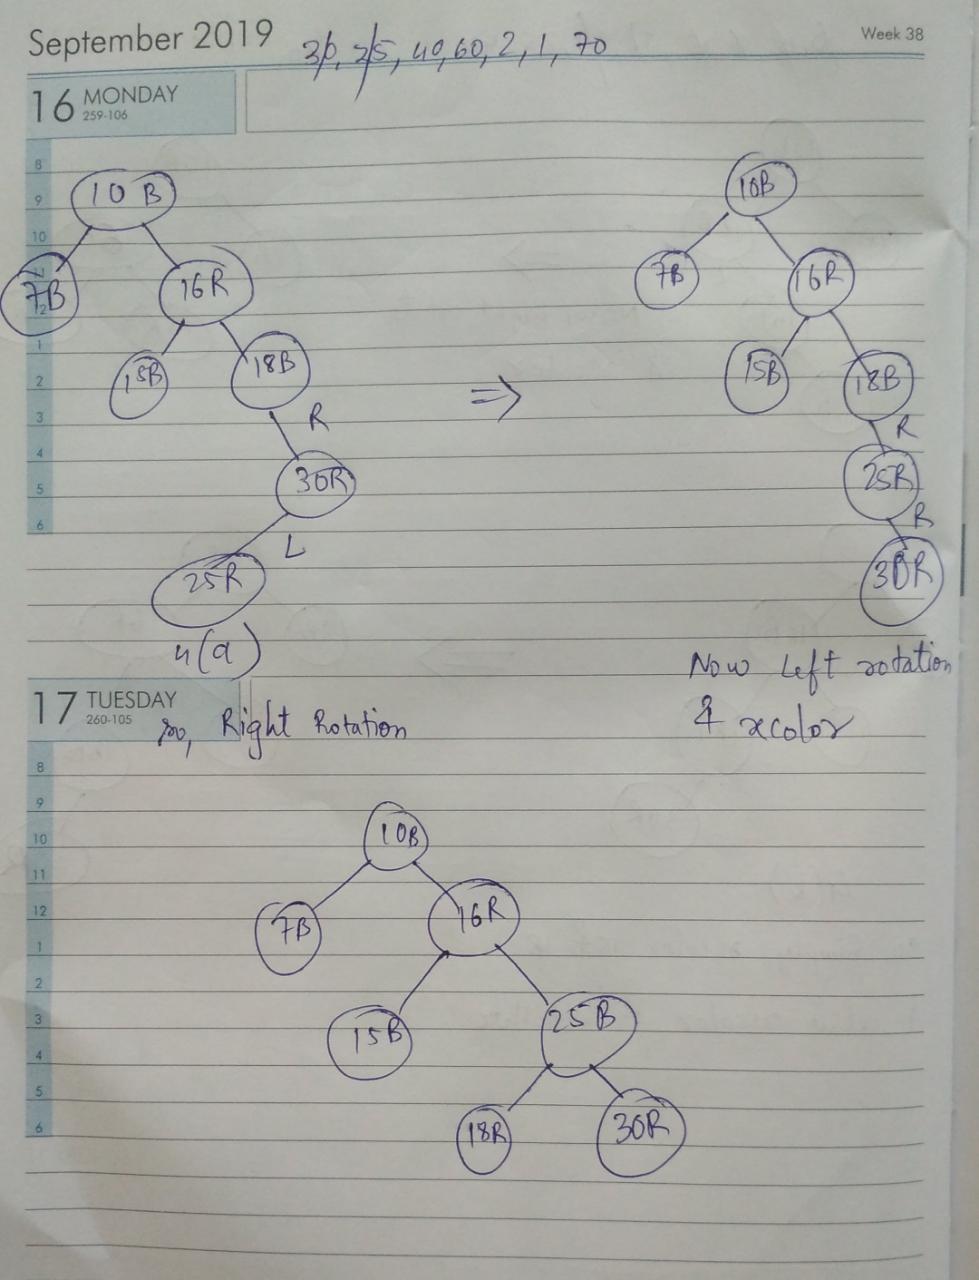 September 2019
30, 25, 40, 60, 2, 1, 70
Week 38
16 MONDAY
259-106
8
9
10
11
12
1
2
3
4
5
6
10 B
7B
16R
15B
18B
R
30R
L
25R
4(a)
so, Right Rotation
⇒
10B
7B
16R
15B
18B
R
25R
R
30R
Now Left rotation
& recolor
17 TUESDAY
260-105
8
9
10
11
12
1
2
3
4
5
6
10B
7B
16R
15B
25B
18R
30R